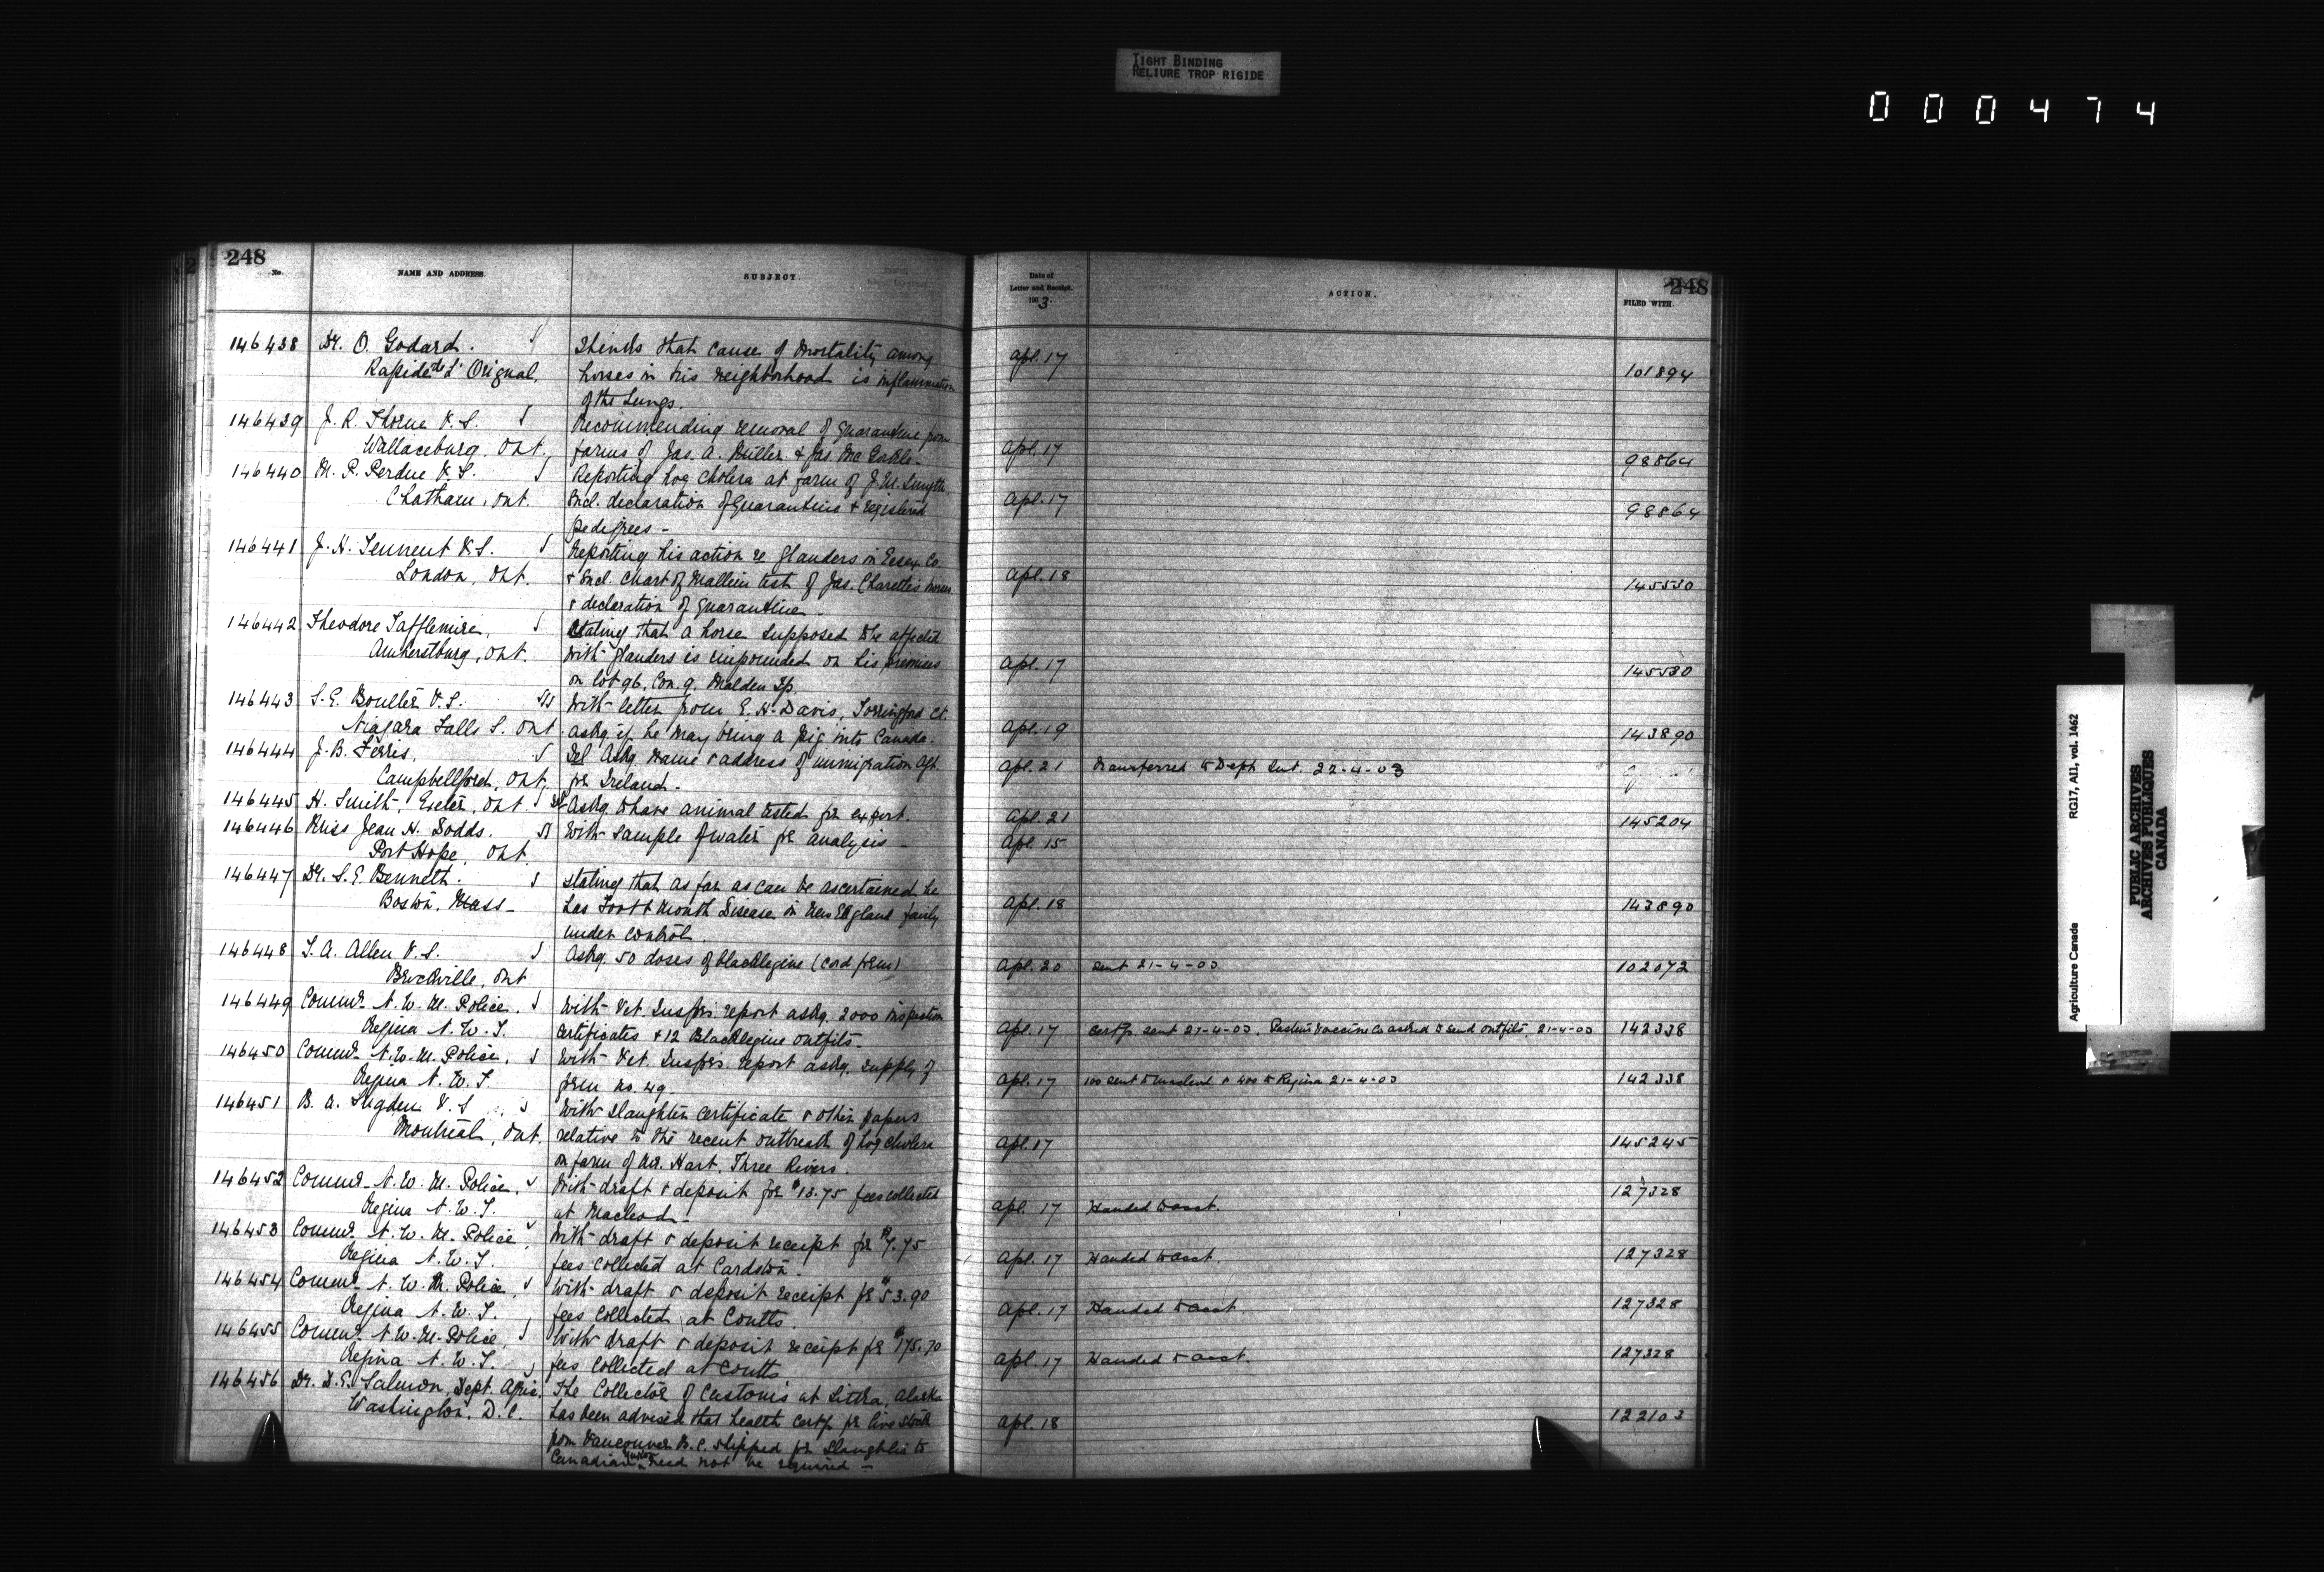 TIGHT BINDING
RELIURE TROP RIGIDE
000474
248
No.
NAME AND ADDRESS.
SUBJECT.
Date of
Letter and Receipt.
1903
ACTION.
248
FILED WITH.
146438 Dr. O. Godard. Thinks that cause of mortality among Apl. 17
Rapide de L'Orignal, horses in his neighborhood is inflammation 101894
of the Lungs.
146439 J. R. Thorne V.S. Recommending removal of quarantine from
Wallaceburg, Ont. farms of Jas. A. Miller & Jas. Mc Apl. 17 98864
146440 M. P. Perdue V.S. Reporting hog cholera at farm of J. M. Smyth
Chatham, Ont. Encl. declaration of quarantine & registered Apl. 17 98864
pedigrees -
146441 J. H. Tennent V.S. Reporting his action re glanders in Essex Co.
London, Ont. & Encl. chart of Mallein test of Jas. Charette's horses Apl. 18 145530
& declaration of quarantine -
146442 Theodore Lafflemire, Stating that a horse supposed to be affected
Amherstburg, Ont. with glanders is impounded on his premises Apl. 17 145530
on lot 96, Con. 9, Malden Tp.
146443 S. E. Boulter V.S. With letter from E. H. Davis, Torringford Ct.
Niagara Falls S. Ont. askg. if he may bring a pig into Canada. Apl. 19 143890
146444 J. B. Ferris, Tel. Askg. name & address of immigration Agt.
Campbellford, Ont, for Ireland - Apl. 21 Transferred to Dept. Int. 22-4-03
146445 H. Smith, Exeter, Ont. Askg. to have animal tested for export. Apl. 21 145204
146446 Miss Jean H. Dodds. With sample of water for analysis - Apl. 15
Port Hope, Ont.
146447 Dr. S. E. Bennett. Stating that as far as can be ascertained he
Boston, Mass - has Foot & Mouth Disease in New England fairly Apl. 18 143890
under control.
146448 T. A. Allen V.S. Askg. 50 doses of blacklegine (cord form) Apl. 20 Sent 21-4-03 102072
Brockville, Ont
146449 Commr. N. W. M. Police, With Vet. Inspr's. report askg. 2000 inspection
Regina N. W. T. certificates & 12 Blacklegine outfits - Apl. 17 Certfs. sent 21-4-03. Pasteur Vaccine Co asked to send outfits. 21-4-03 142338
146450 Commr. N. W. M. Police, With Vet. Inspr's. report askg. supply of
Regina N. W. T. form no. 49 Apl. 17 100 sent to Macleod & 400 to Regina 21-4-03 142338
146451 B. A. Sugden V.S. With slaughter certificate & other papers
Montreal, Ont. relative to the recent outbreak of hog cholera Apl. 17 145245
on farm of Mr. Hart, Three Rivers.
146452 Commr. N. W. M. Police, With draft & deposit for $13.75 fees collected 127328
Regina N. W. T. at Macleod - Apl. 17 Handed to acct.
146453 Commr. N. W. M. Police, With draft & deposit receipt for $7.75
Regina N. W. T. fees collected at Cardston. Apl. 17 Handed to acct. 127328
146454 Commr. N. W. M. Police, With draft & deposit receipt for $53.90
Regina N. W. T. fees collected at Coutts. Apl. 17 Handed to acct. 127328
146455 Commr. N. W. M. Police, With draft & deposit receipt for $175.70
Regina N. W. T. fees collected at Coutts Apl. 17 Handed to acct. 127328
146456 Dr. D. E. Salmon, Dept. Agric. The Collector of Customs at Sitka, Alaska
Washington, D.C. has been advised that health certf. for live stock Apl. 18 122103
from Vancouver B.C. shipped for slaughter to
Canadian Yukon need not be required -
Agriculture Canada RG17, AII, vol. 1462
PUBLIC ARCHIVES
ARCHIVES PUBLIQUES
CANADA